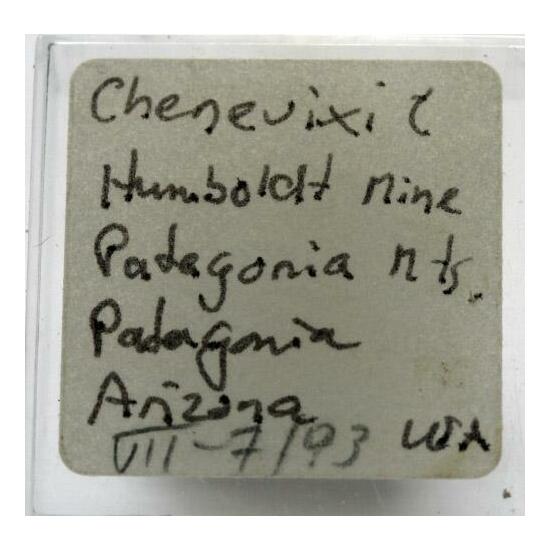 Chenevixit
Humboldt Mine
Patagonia Mts.
Patagonia
Arizona
VII-7/93 USA